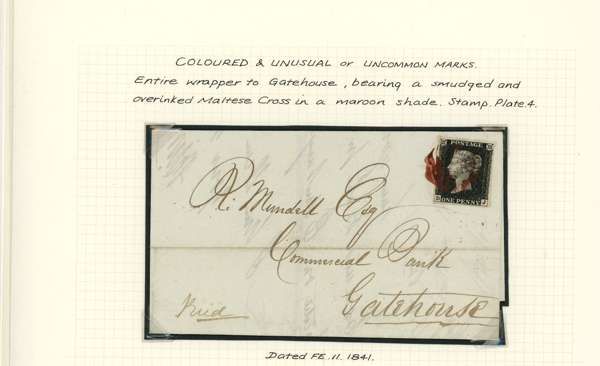 COLOURED & UNUSUAL or UNCOMMON MARKS.
Entire wrapper to Gatehouse, bearing a smudged and
overinked Maltese Cross in a maroon shade. Stamp. Plate.4.
POSTAGE
ONE PENNY
R. Mundell Esq
Commercial Bank
Gatehouse
Paid
Dated FE.11.1841.